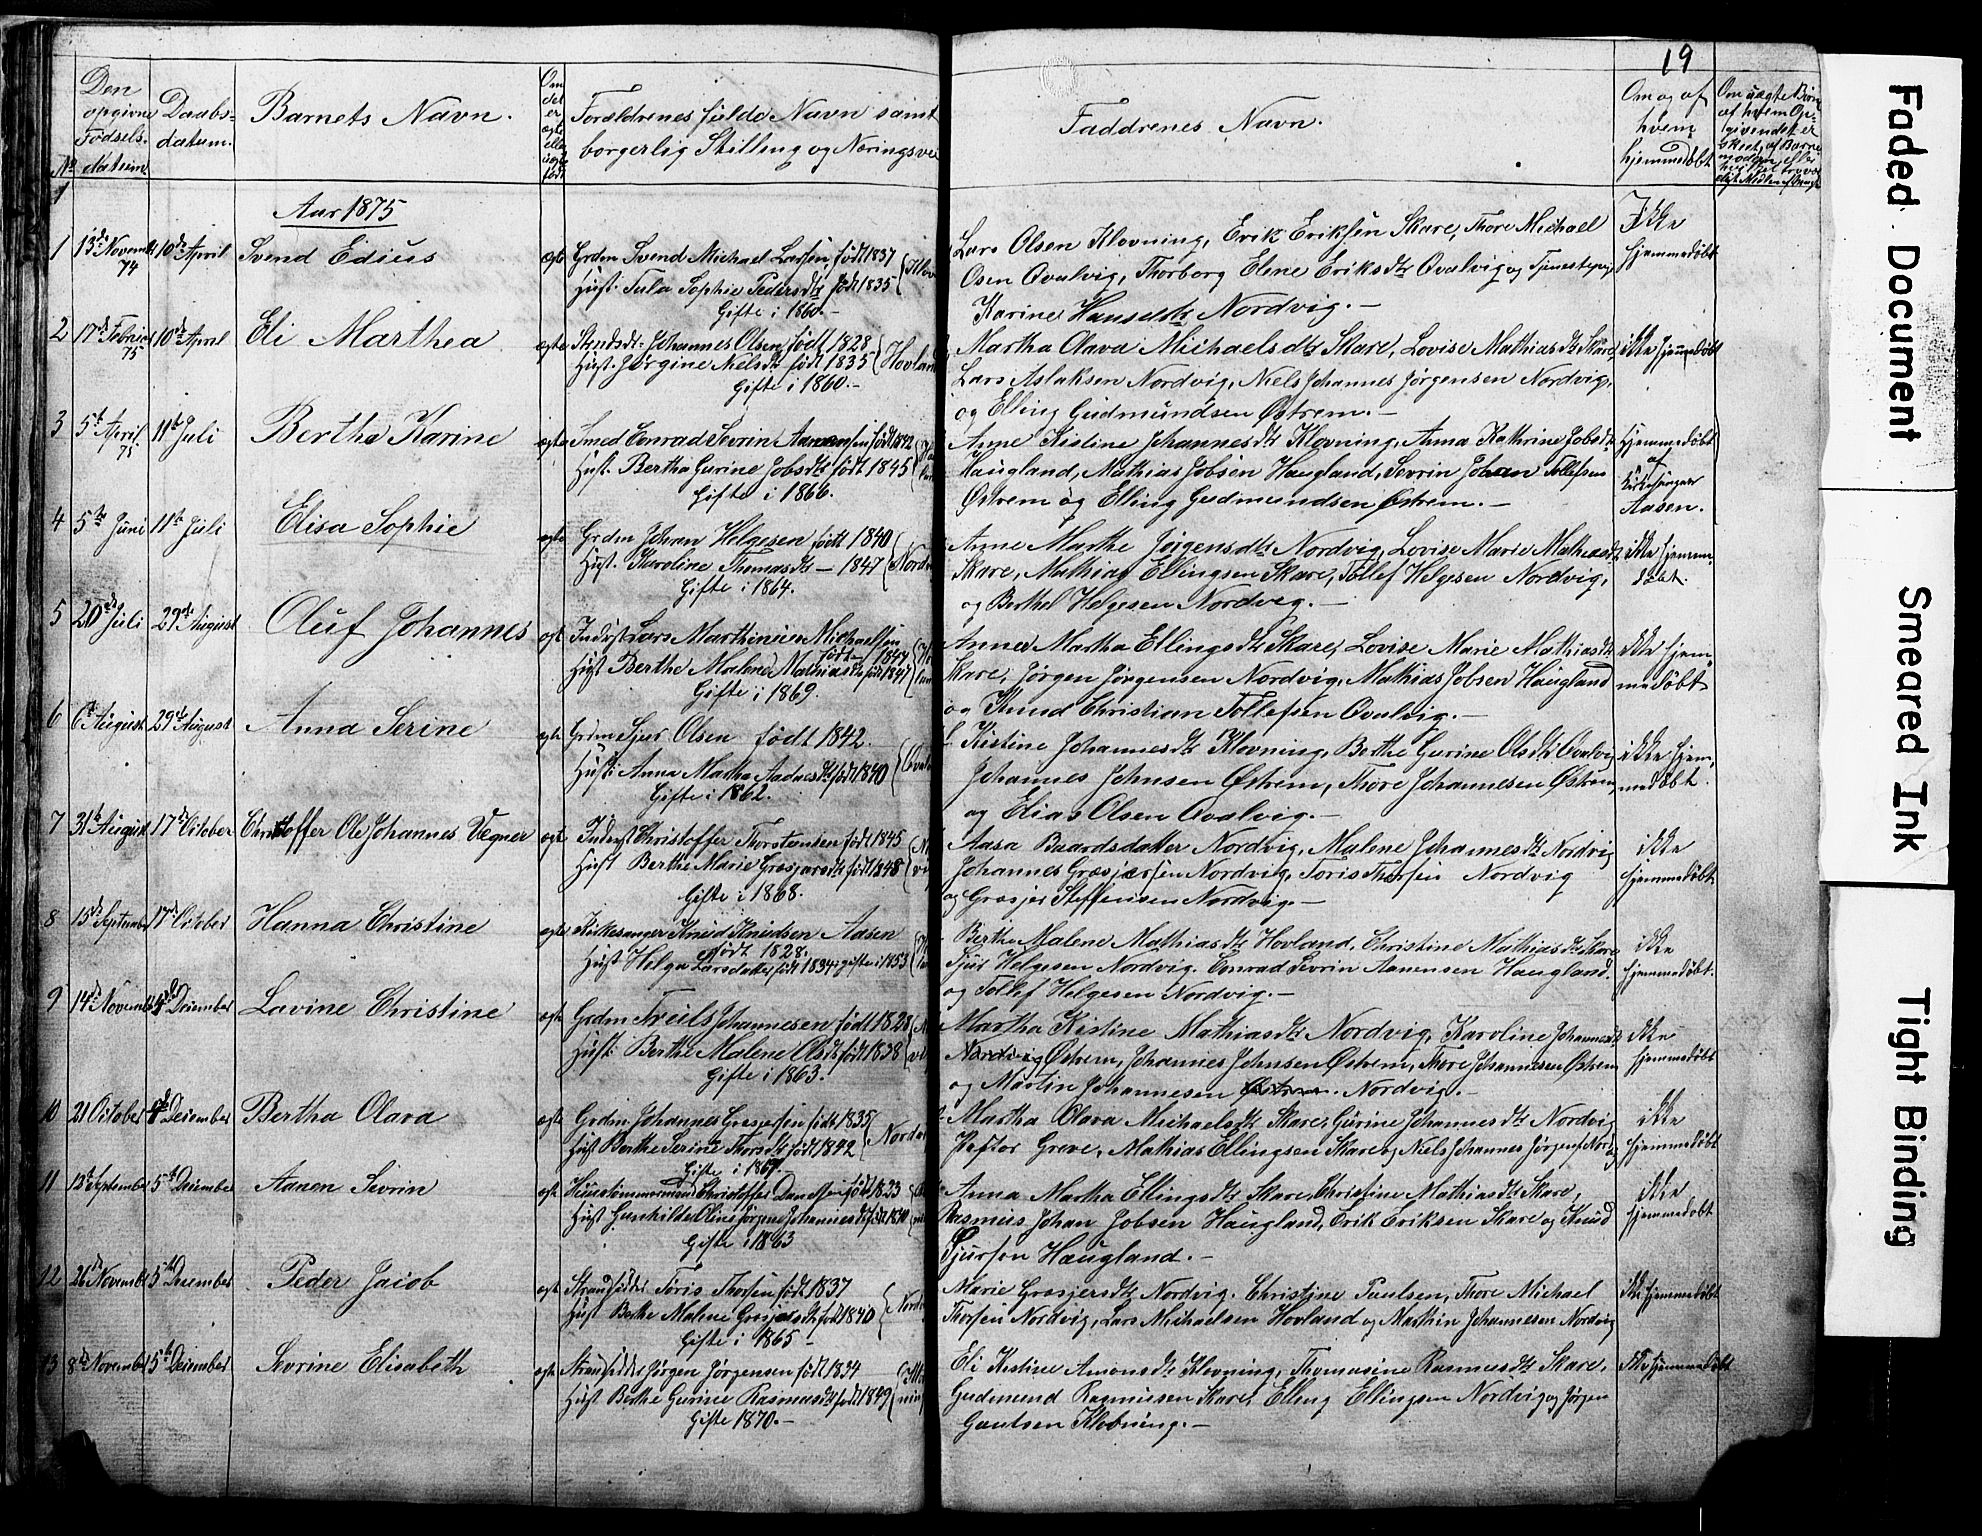 19
Den opgivne Fødsels-datum
Daabs-datum.
Barnets Navn.
Om det er ægte eller uægte født
Forældrenes fulde Navn samt
borgerlig Stilling og Næringsvei
Faddrenes Navn.
Om og af hvem hjemmedøbt
No
Aar 1875
1 13de Novemb 74 10de April Svend Edius ægte
Grdm Svend Michael Larsen, født 1837
Hust. Tula Sophie Pedersdtr født 1835
Gifte i 1860.-
Lars Olsen Klovning, Erik Eriksen Skare, Thore Michael
Osen Qvalvig, Thorborg Elene Eriksdtr Qvalvig og Tjenestepige
Karine Hansdtr Nordvig.-
Ikke hjemmedøbt
2 17de Februar 75 10de April Eli Marthea ægte
Johannes Olsen født 1828
Hust. Jørgine Nielsdtr født 1835 Hovland
Gifte i 1860.-
Martha Olava Michaelsdtr Skare, Lovise Mathiasdtr Skare,
Lars Aslaksen Nordvig, Niels Johannes Jørgensen Nordvig,
og Elling Gudmundsen Østrem.-
ikke hjemmedøbt
3 5te April 75 11te Juli Bertha Karine ægte
Smed Conrad Sevrin Aanensen født 1842
Hust. Bertha Gurine Jobsdtr født 1845
Gifte i 1866.
Anne Kistine Johannesdtr Klovning, Anna Kathrine Jobsdtr
Haugland, Mathias Jobsen Haugland, Sevrin Johan Tollefsen
Østrem og Elling Gudmundsen Østrem.-
Hjemmedøbt af Kirkesanger Aasen.
4 5te Juni 11te Juli Elisa Sophie ægte
Grdm Johan Helgesen født 1840
Hust. Karoline Thomasdtr - 1847 Nordv
Gifte i 1864.
Anne Marthe Jørgensdtr Nordvig, Lovise Marie Mathiasdtr
Skare, Mathias Ellingsen Skare, Tollef Helgesen Nordvig,
og Berthel Helgesen Nordvig.-
ikke hjemmedøbt.
5 20de Juli 29de August Oluf Johannes ægte
Inderst Lars Marthinius Michaelsen
født 1847
Hust Berthe Malene Mathiasdtr født 1847
Gifte i 1869.
Anne Martha Ellingsdtr Skare, Lovise Marie Mathiasdtr
Skare, Jørgen Jørgensen Nordvig, Mathias Jobsen Haugland
og Knud Christian Tollefsen Qvalvig.-
ikke hjemmedøbt
6 6te August 29de August Anna Serine ægte
Grdm Sjur Olsen født 1842.
Hust: Anna Martha Aadnesdtr født 1840
Gifte i 1862.
Kistine Johannesdtr Klovning, Berthe Gurine Olsdtr Qvalvig
Johannes Johnsen Østrem, Thore Johannesen Østrem,
og Elias Olsen Qvalvig.-
ikke hjemmedøbt.
7 31te August 17de October Christoffer Ole Johannes Vegner ægte
Inderst Christoffer Thorstensen født 1845
Hust Berthe Marie Grosjarsdtr født 1848
Gifte i 1868.
Aasa Baardsdatter Nordvig, Malene Johannesdtr Nordvig
Johannes Grosjærsen Nordvig, Toris Thorsen Nordvig
og Grosjer Steffensen Nordvig.-
ikke hjemmedøbt
8 15de September 17de October Hanna Christine ægte
Kirkesanger Knud Knudsen Aasen
født 1828.
Hust Helga Larsdatter født 1834 gifte i 1853
Berthe Malene Mathiasdtr Hovland, Christine Mathiasdtr Skare
Sjur Helgesen Nordvig. Conrad Sevrin Aanensen Haugland.
og Tollef Helgesen Nordvig.-
ikke hjemmedøbt.
9 14de Novemb December Lavine Christine ægte
Grdm Troels Johannesen født 1828
Hust Berthe Malene Olsdtr født 1838
Gifte i 1863.
Martha Kistine Mathiasdtr Nordvig, Karoline Johannesdtr
Nordvig Østrem, Johannes Johnsen Østrem, Thore Johannesen Østrem
og Martin Johannesen Østrem. Nordvig.-
ikke hjemmedøbt
10 21 October December Bertha Olava ægte
Grdm. Johannes Grosjersen født 1835
Hust Berthe Serine Thorsdtr født 1842 Nordv
Gifte i 1867.
Martha Olava Michaelsdtr Skare, Gurine Johannesdtr Nordvig
Pastor Greve, Mathias Ellingsen Skare og Niels Johannes Jørgens Nordvig
ikke hjemmedøbt
11 13de September 5te December Aanen Sevrin ægte
Huustømmermand Christoffer født 1833
Hust Gunhilde Oline Jørgine Johannesdtr født 1840
Gifte i 1863
Anna Martha Ellingsdtr Skare, Christine Mathiasdtr Skare,
Rasmus Johan Jobsen Haugland, Erik Eriksen Skare og Knud
Sjursen Haugland.-
ikke hjemmedøbt
12 26de Novemb 5te December Peder Jacob ægte
Strandsidder Toris Thorsen født 1837
Hust Berthe Malene Grosjersdtr født 1840 Nord
Gifte i 1865
Marie Grosjersdtr Nordvig. Christine Paulsen, Thore Michael
Thorsen Nordvig, Lars Michaelsen Hovland og Marthin Johannesen Nordvig
ikke hjemmedøbt
13 8de November 5te December Sevrine Elisabeth ægte
Strandsidder Jørgen Jørgensen født 1834
Hust Berthe Gurine Rasmusdtr født 1849
Gifte 1870.-
Eli Kistine Amonsdtr Klovning, Thomasine Rasmusdtr Skare,
Gudmund Rasmussen Skare, Elling Ellingsen Nordvig og Jørgen
Gautsen Klovning.-
ikke hjemmedøbt
Faded Document
Smeared Ink
Tight Binding